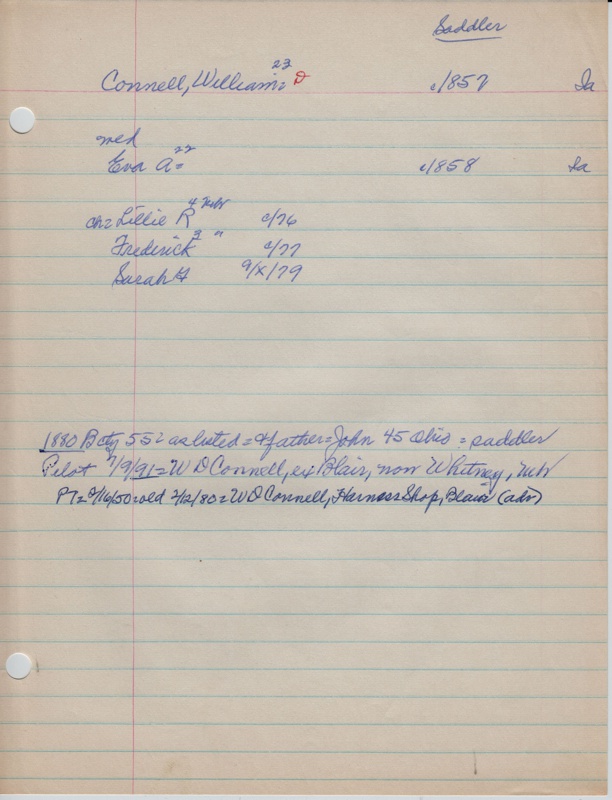 Saddler
Connell, William = 23 D c/1857 Ia
med
Eva A = 22 c/1858 Ia
ch = Lillie R 4 Neb c/76
Frederick 3 " c/77
Sarah 9/X/79
1880 Bcty 55 as listed = & father = John 45 Ohio = saddler
Pilot 7/9/91 = W D Connell, ex Blair, now Whitney, Neb
PT = 2/16/50 = old 2/12/80 = W D Connell, Harness Shop, Blair (adv)